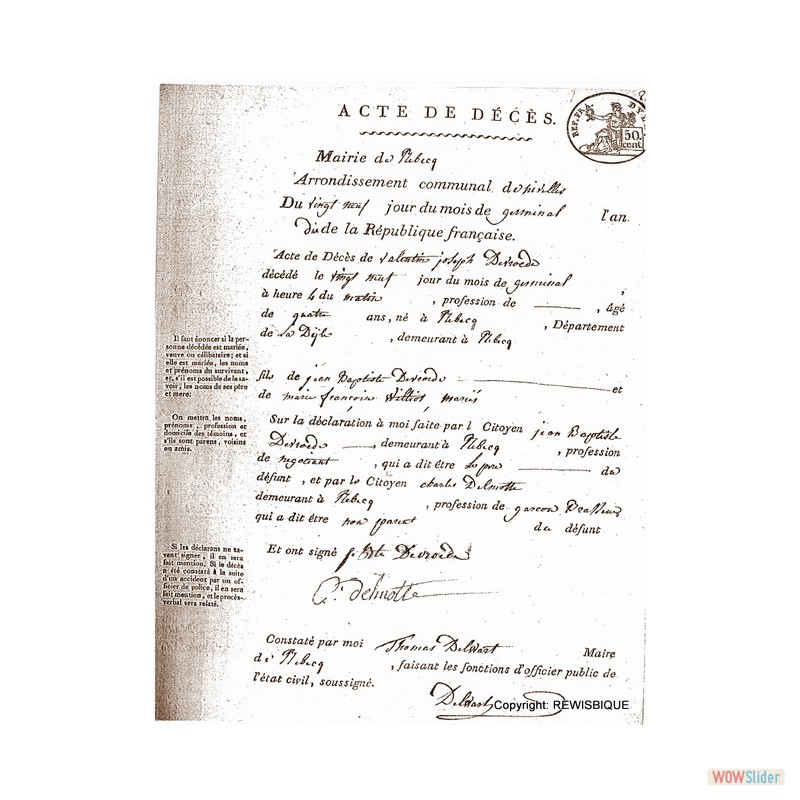 ACTE DE DÉCÈS.
REP. FRA
50.
cent
Mairie de Rebecq
Arrondissement communal de nivelles
Du vingt neuf jour du mois de germinal l'an
dix de la République française.
Acte de Décès de valentin joseph Devroede
décédé le vingt neuf jour du mois de germinal ,
à heure 4 du matin , profession de , âgé
de quatre ans, né à Rebecq , Département
de La Dÿle , demeurant à Rebecq
Il faut énoncer si la per-
sonne décédée est mariée,
veuve ou célibataire; et si
elle est mariée, les noms
et prénoms du survivant,
et, s'il est possible de le sa-
voir, les noms de ses père
et mere.
fils de jean Baptiste Devroede et
de marie françoise mariés
On mettra les noms,
prénoms, profession et
domicile des témoins, et
s'ils sont parens, voisins
ou amis.
Sur la déclaration à moi faite par l Citoyen jean Baptiste
Devroede , demeurant à Rebecq , profession
de negotiant , qui a dit être Le pere du
défunt , et par le Citoyen charles Delmotte
demeurant à Rebecq , profession de garcon
qui a dit être non parent du défunt
Si les déclarans ne sa-
vent signer, il en sera
fait mention. Si le décès
a été constaté à la suite
d'un accident par un of-
ficier de police, il en sera
fait mention, et le procès-
verbal sera relaté.
Et ont signé j. Bte Devroede
C. delmotte
Constaté par moi Thomas Delwart Maire
de Rebecq , faisant les fonctions d'officier public de
l'état civil, soussigné.
Delwart
Copyright: REWISBIQUE
WOWSlider